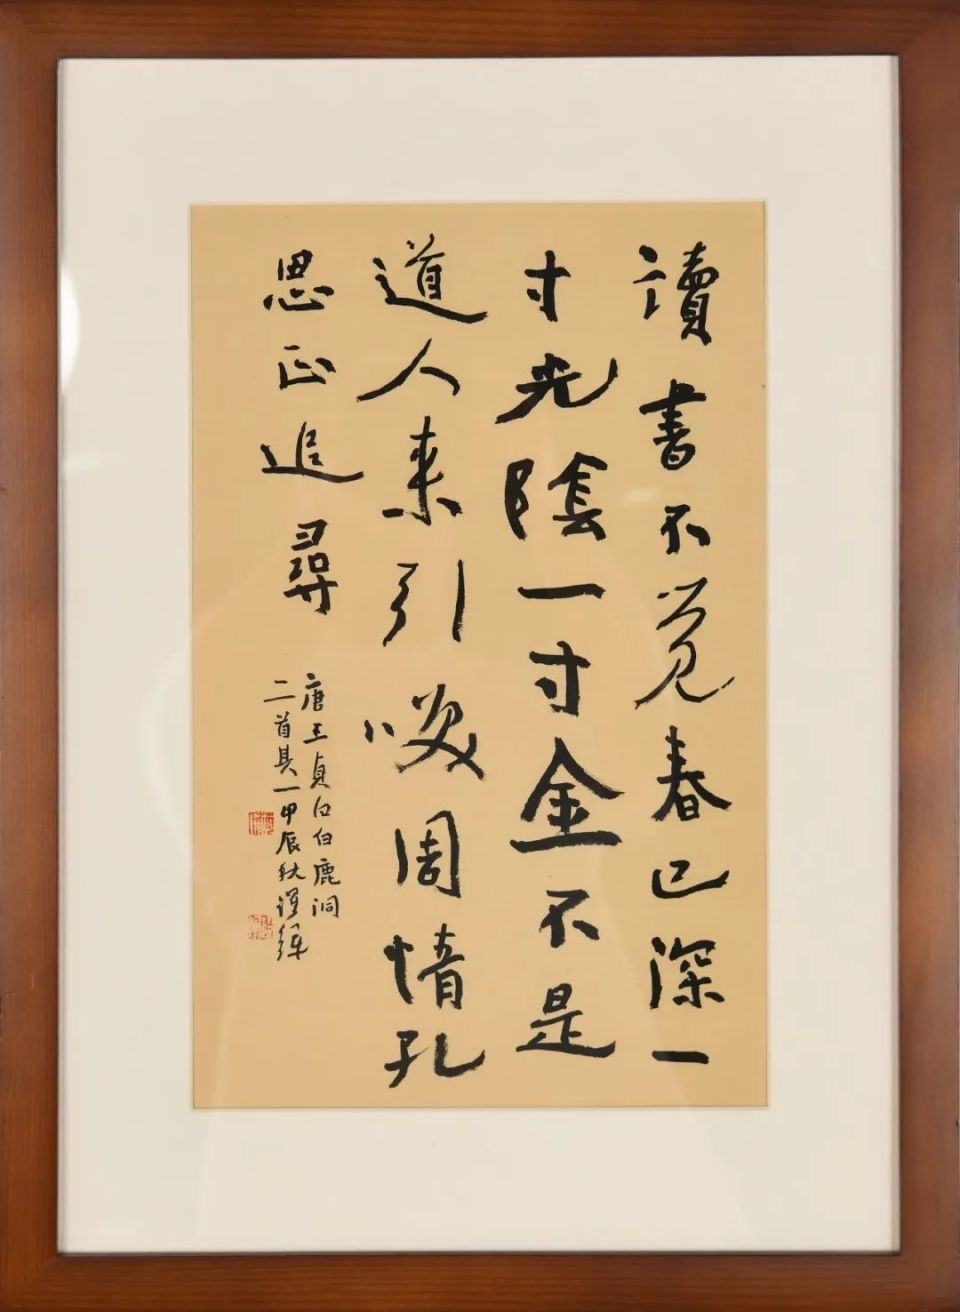 讀書不觉春已深一
寸光陰一寸金不是
道人来引咲周情孔
思正追尋
唐王貞白白鹿洞
二首其一甲辰秋